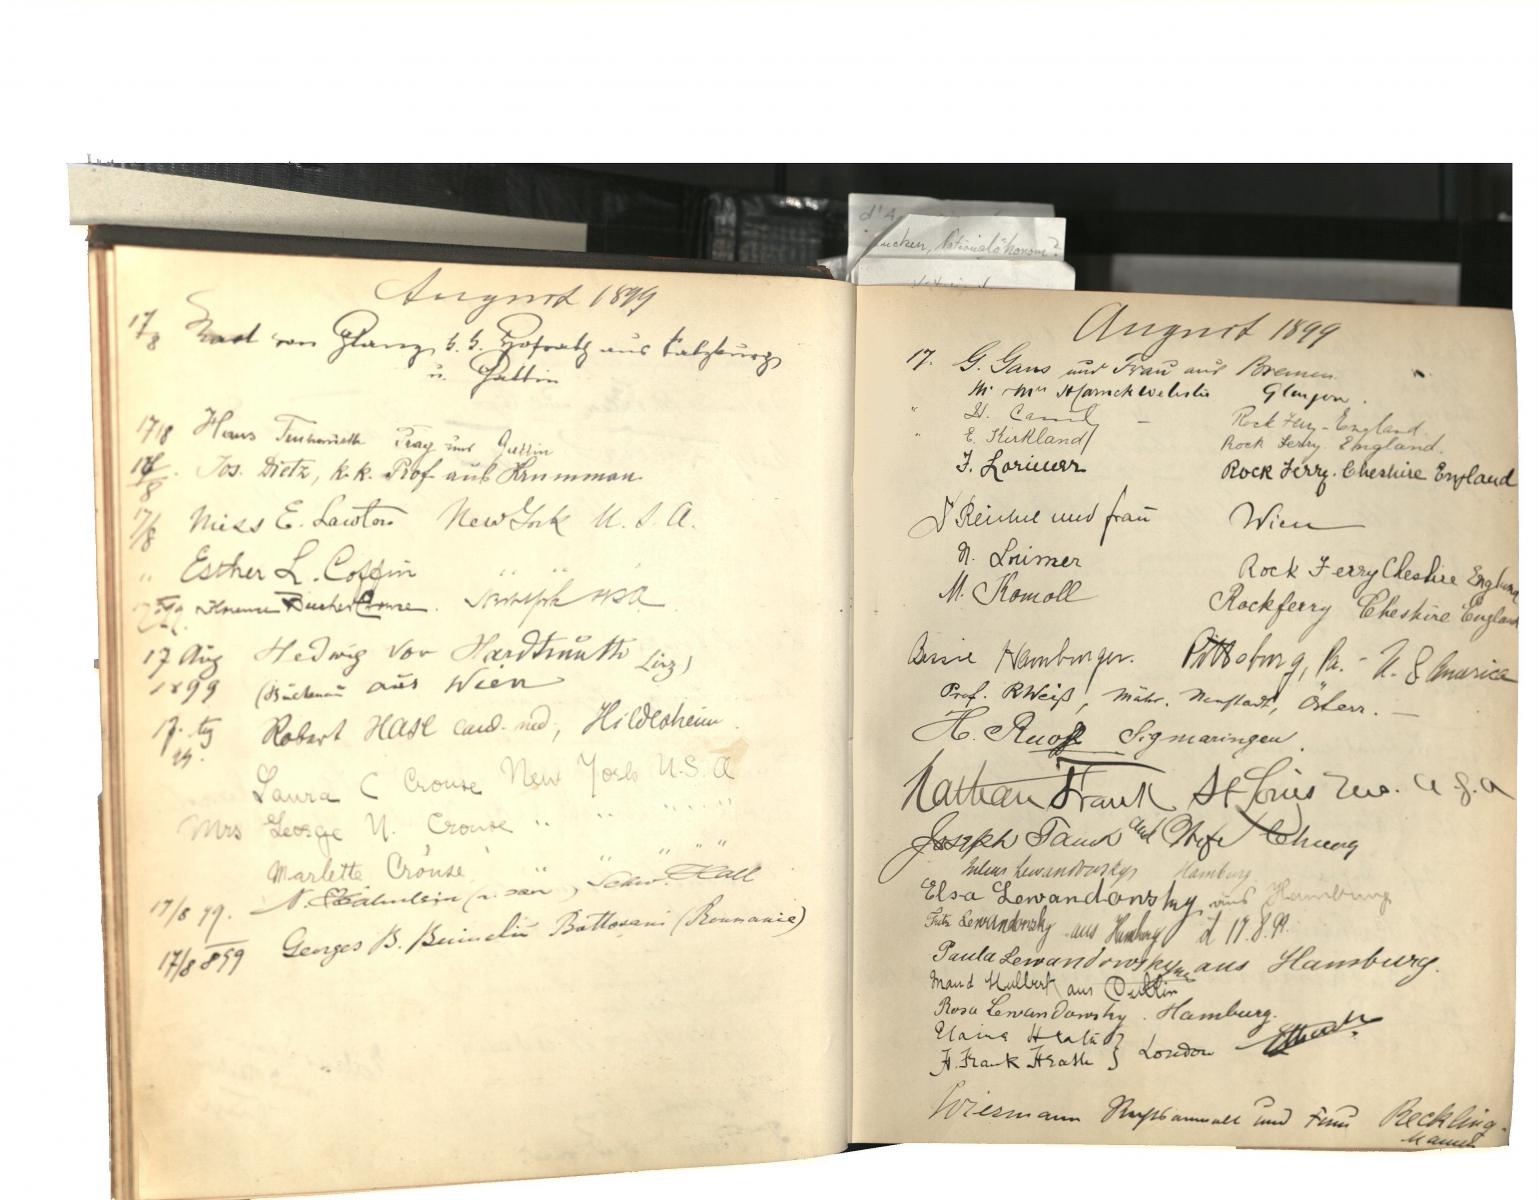 d'A
ucken, Nationalökonom?
August 1899
17/8 von Glanz k. k. Hofrath aus Salzburg
u. Gattin
17/8 Hans Prag und Gattin
17/8. Jos. Dietz, k.k. Prof aus Krummau
17/8 Miss E. Lawton New York U. S. A.
" Esther L. Coffin " " "
Florence Buchter Crouse. New York USA
17 Aug Hedwig von Hardtmuth Linz)
1899 aus Wien
17. Aug Robert Hase cand. med, Hildesheim.
99.
Laura C Crouse New York U.S.A
Mrs George N. Crouse " " " " "
Marlette Crouse " " " " "
17/8 99. N. Schw. Hall
17/8 899 Georges B. Bottosani (Roumanie)
August 1899
17. G. Gans und Frau aus Bremen.
Mr. Mrs Glasgow.
" H. Rock Ferry - England.
" E. Kirkland Rock Ferry. England.
F. Lorimer Rock Ferry. Cheshire England
Reichel und Frau Wien
N. Lorimer Rock Ferry Cheshire England
M. Komoll Rockferry Cheshire England
Hamburger. Pittsburg, Pa. - U. S America
Prof. R Weiß, Mähr. Neustadt, Österr. —
H. Sigmaringen.
Nathan Frank St Louis Mo. U S A
Joseph and Wife
Julius Lewandowsky Hamburg
Elsa Lewandowsky aus Hamburg
Fritz Lewandowsky aus Hamburg d 17.8.99.
Paula Lewandowsky aus Hamburg.
Maud Hulbert aus
Rosa Lewandowsky. Hamburg.
Heath }
H. Frank Heath } London
Wiesmann Rechtsanwalt und Frau Reckling-
hausen